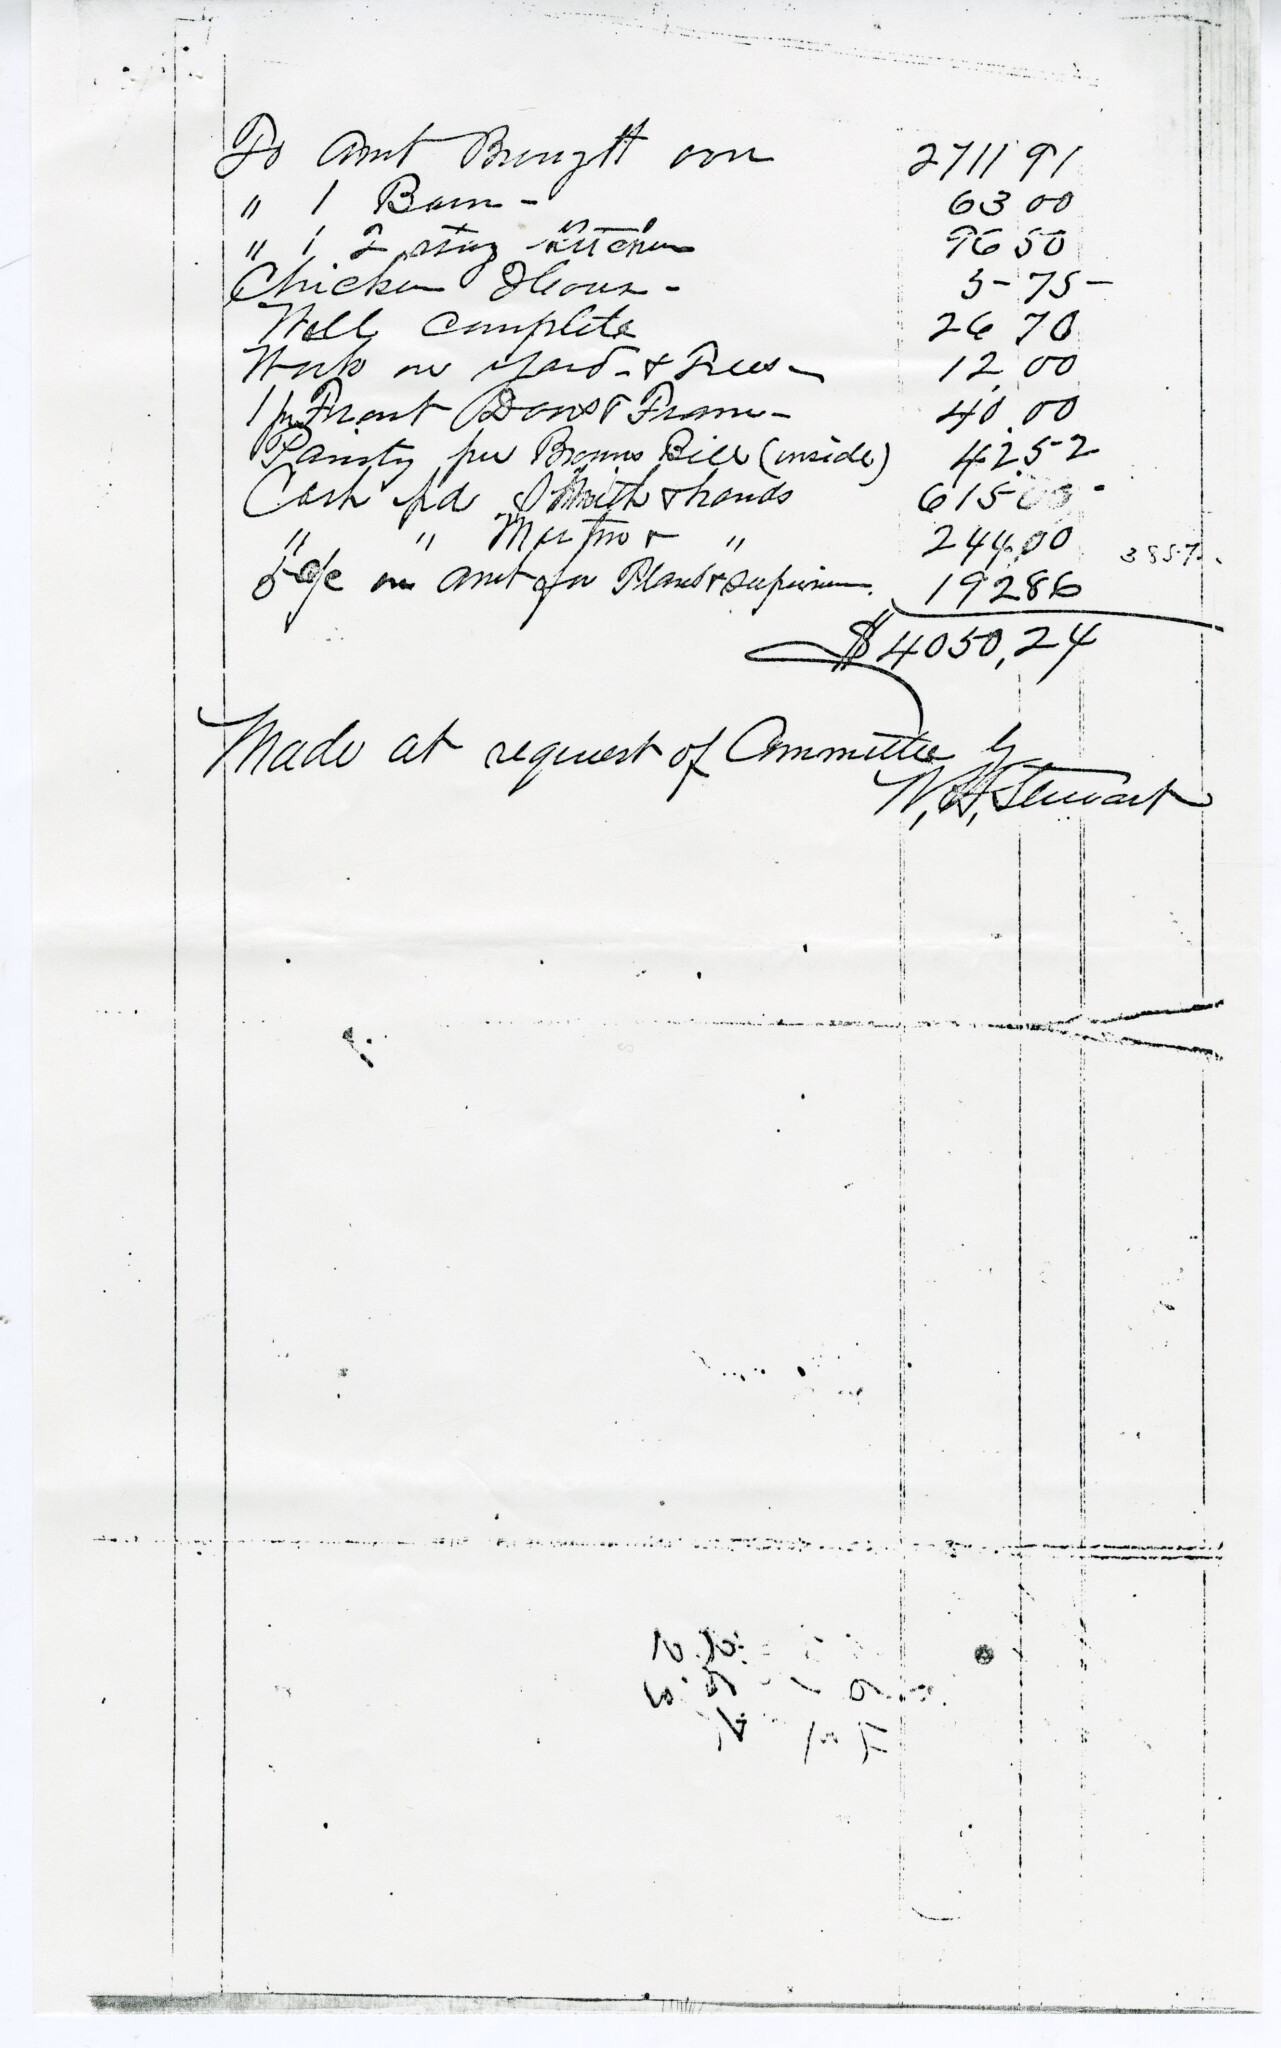 To Amt Brought over 2711 91
" 1 Barn - 63 00
" 1 2 story Kitchen 96 50
Chicken House - 5 - 75 -
Well Complete 26 70
Work on Yard - & Trees - 12.00
1 pr Front Doors & Frame - 40.00
Painty per Browns Bill (inside) 42 52
Cash pd Smith & hands 615 00 -
" " & " 244.00
3857
5 % on amt for Plans & supervision. 192 86
$4050,24
Made at request of Committee by
W. H. Stewart